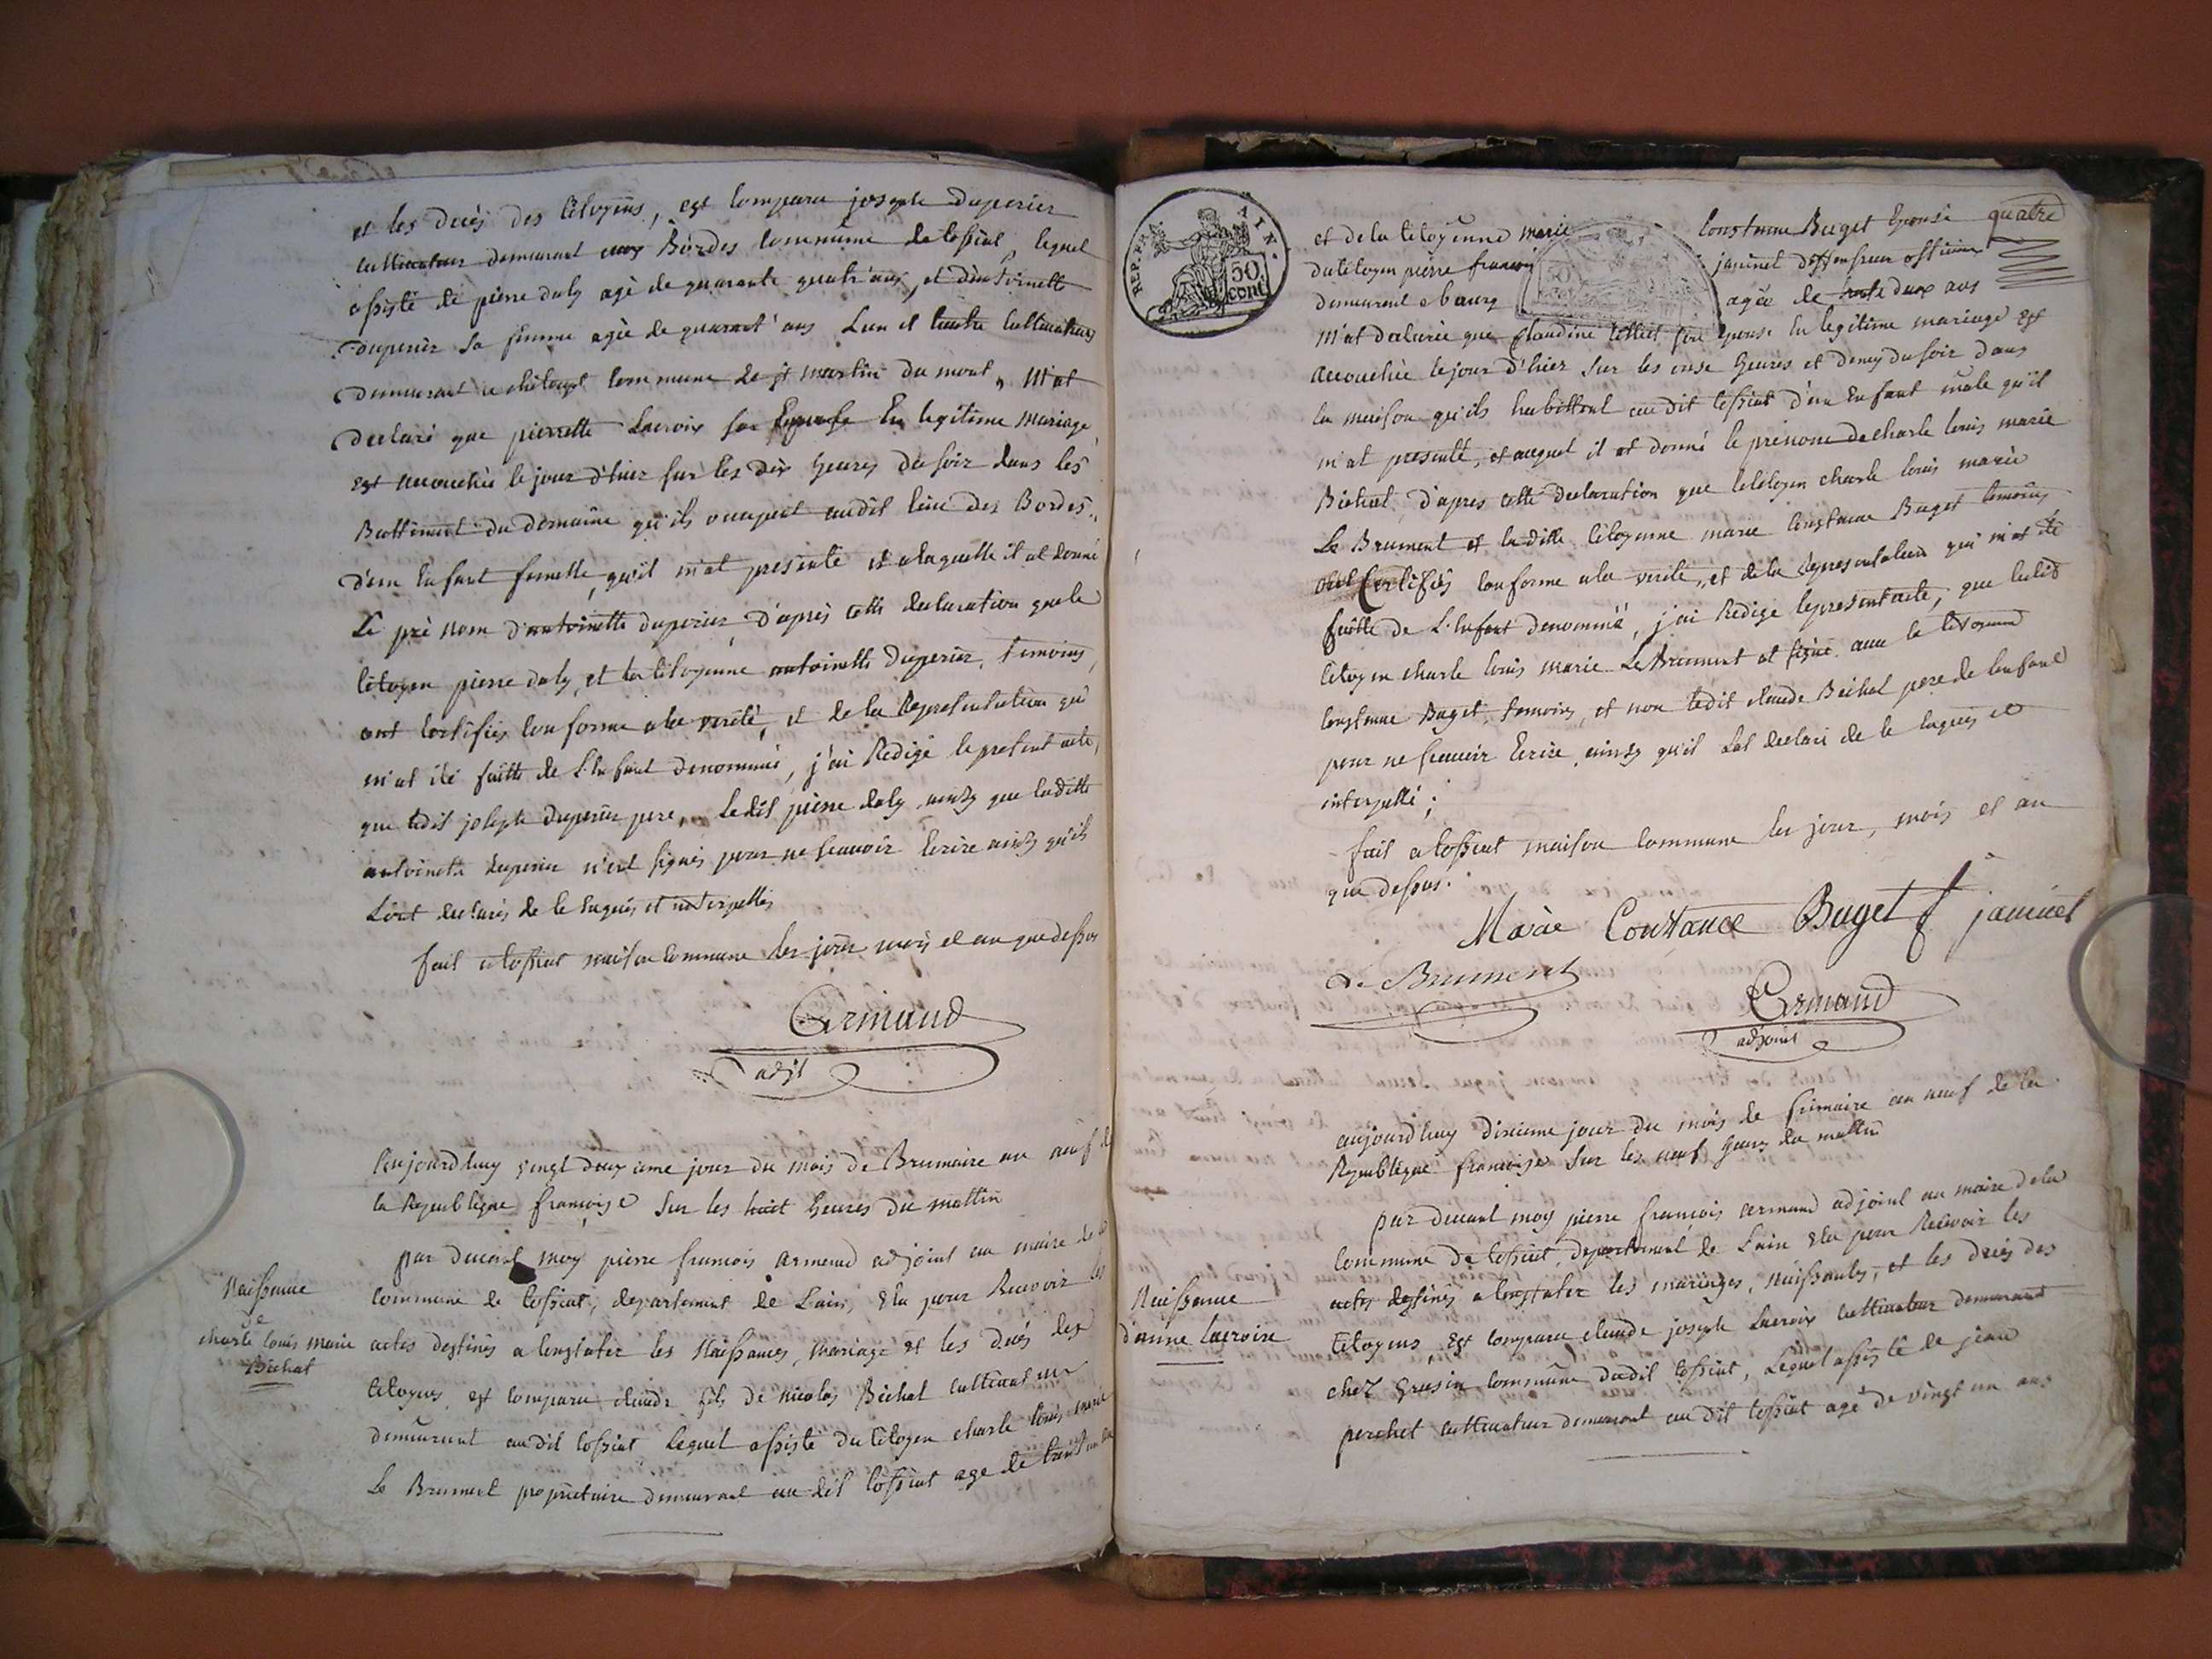 et les decès des citoyens, est comparu joseph duperier
cultivateur demeurant aux Bordes commune de tossiat, lequel
assisté de pierre daly agé de quarante quatr'ans, et d'antoinette
duperier sa femme agée de quarant'ans l'un et l'autre cultivateurs
demeurant a commune de st martin du mont, m'at
declaré que pierrette Lacroix son Epouse En legitime mariage
est accouchée le jour d'hier sur les dix heures du soir dans les
Battiment du domaine qu'ils occupent audit lieu des Bordes,
d'un Enfant femelle, qu'il m'at presenté et alaquelle il at donné
Le pré nom d'antoinette duperier, d'après cette declaration que le
citoyen pierre daly, et la citoyenne antoinette duperier, temoins,
ont certifiés conforme ala verité, et de la Representation qui
m'at été faitte de L'Enfant denommé, j'ai Redigé le present acte,
que ledit joseph duperier pere, Ledit pierre daly ainsy que laditte
antoinette duperier n'ont signés pour ne scavoir Ecrire ainsy qu'ils
L'ont declarés de le Enquis et interpellés
fait atossiat maison commune les jour mois et an que dessus
Armand
adjt
Aujourdhuy vingt deux ieme jour du mois de Brumaire an neuf de
la Republique françoise sur les huit heures du mattin
Naissance
de
charle louis marie
Bichat
par devant moy pierre francois armand adjoint au maire de la
commune de tossiat, departement de Lain, Elu pour Recevoir les
actes destinés a constater les Naissances, mariage et les decés des
citoyens, est comparu claude fils de nicolas Bichat cultivateur
demeurant audit tossiat Lequel assisté du citoyen charle louis marie
Le Brument proprietaire demeurant au dit tossiat agé de
RÉP. FRA. AIN.
50 cent.
quatre
et de la citoyenne marie constance Buget Epouse
du citoyen pierre francois janinet deffenseur officieux
demeurant a bourg agée de deux ans
m'at declarée que Claudine son epouse En legitime mariage est
accouchée le jour d'hier sur les onse heures et demy du soir dans
la maison qu'ils habittent au dit tossiat d'un Enfant male qu'il
m'at presenté, et auquel il at donné le prénom de charle louis marie
Bichat, d'apres cette declaration que le citoyen charle louis marie
Le Brument et laditte citoyenne marie constance Buget temoins
ont Certifiés conforme ala verité, et de la Representation qui m'at été
faitte de L'Enfant denommé, j'ai Redigé le present acte, que ledit
citoyen charle louis marie Le Brument at signé avec la citoyenne
constance Buget, temoins, et non ledit claude Bichat pere de lenfant
pour ne scavoir Ecrire, ainsy qu'il Lat declaré de le Enquis et
interpellé;
fait a tossiat maison commune les jour, mois et an
que dessus.
Marie Constance Buget f janinet
Le Brument
Armand
adjoint
aujourdhuy dixieme jour du mois de frimaire an neuf de la
Republique françoise sur les neuf heures du mattin
par devant moy pierre francois armand adjoint au maire dela
commune de tossiat, departement de Lain Elu pour Recevoir les
Naissance
d'anne lacroix
actes destinés a constater les mariages, Naissances, et les decès des
citoyens, est comparu claude joseph Lacroix cultivateur demeurant
chez Grusin commune dudit tossiat, Lequel assisté de jean
perchet cultivateur demeurant au dit tossiat agé de vingt un ans